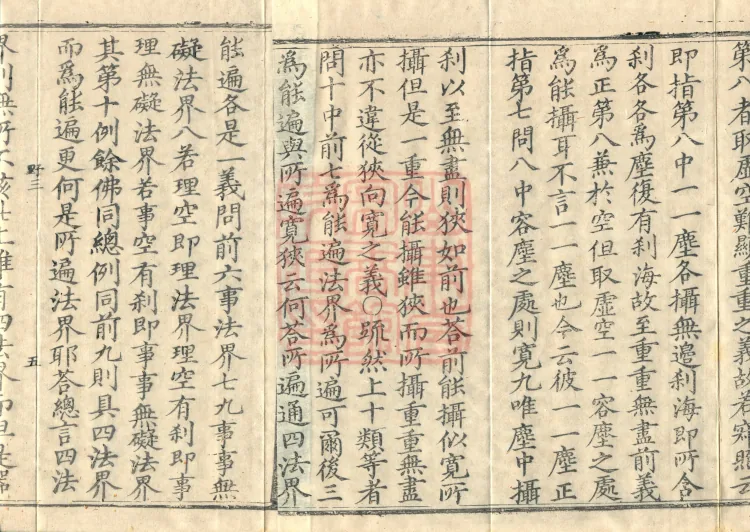 第八者取虚空難顯重重之義故若窮照云
即指第八中一一塵各攝無邉刹海即所含
刹各各為塵復有刹海故至重重無盡前義
為正第八兼於空但取虚空一一容塵之處
為能攝耳不言一一塵也今云彼一一塵正
指第七問八中容塵之處則寛九唯塵中攝
刹以至無盡則狹如前也荅前能攝似寛所
攝但是一重今能攝雖狹而所攝重重無盡
亦不違從狹向寛之義○䟽然上十類等者
問十中前七為能遍法界為所遍可爾後三
為能遍與所遍寛狹云何荅所遍通四法界
能遍各是一義問前六事法界七九事事無
礙法界八若理空即理法界理空有刹即事
理無礙法界若事空有刹即事事無礙法界
其第十例餘佛同總例同前九則具四法界
而為能遍更何是所遍法界耶荅總言四法
野三 五